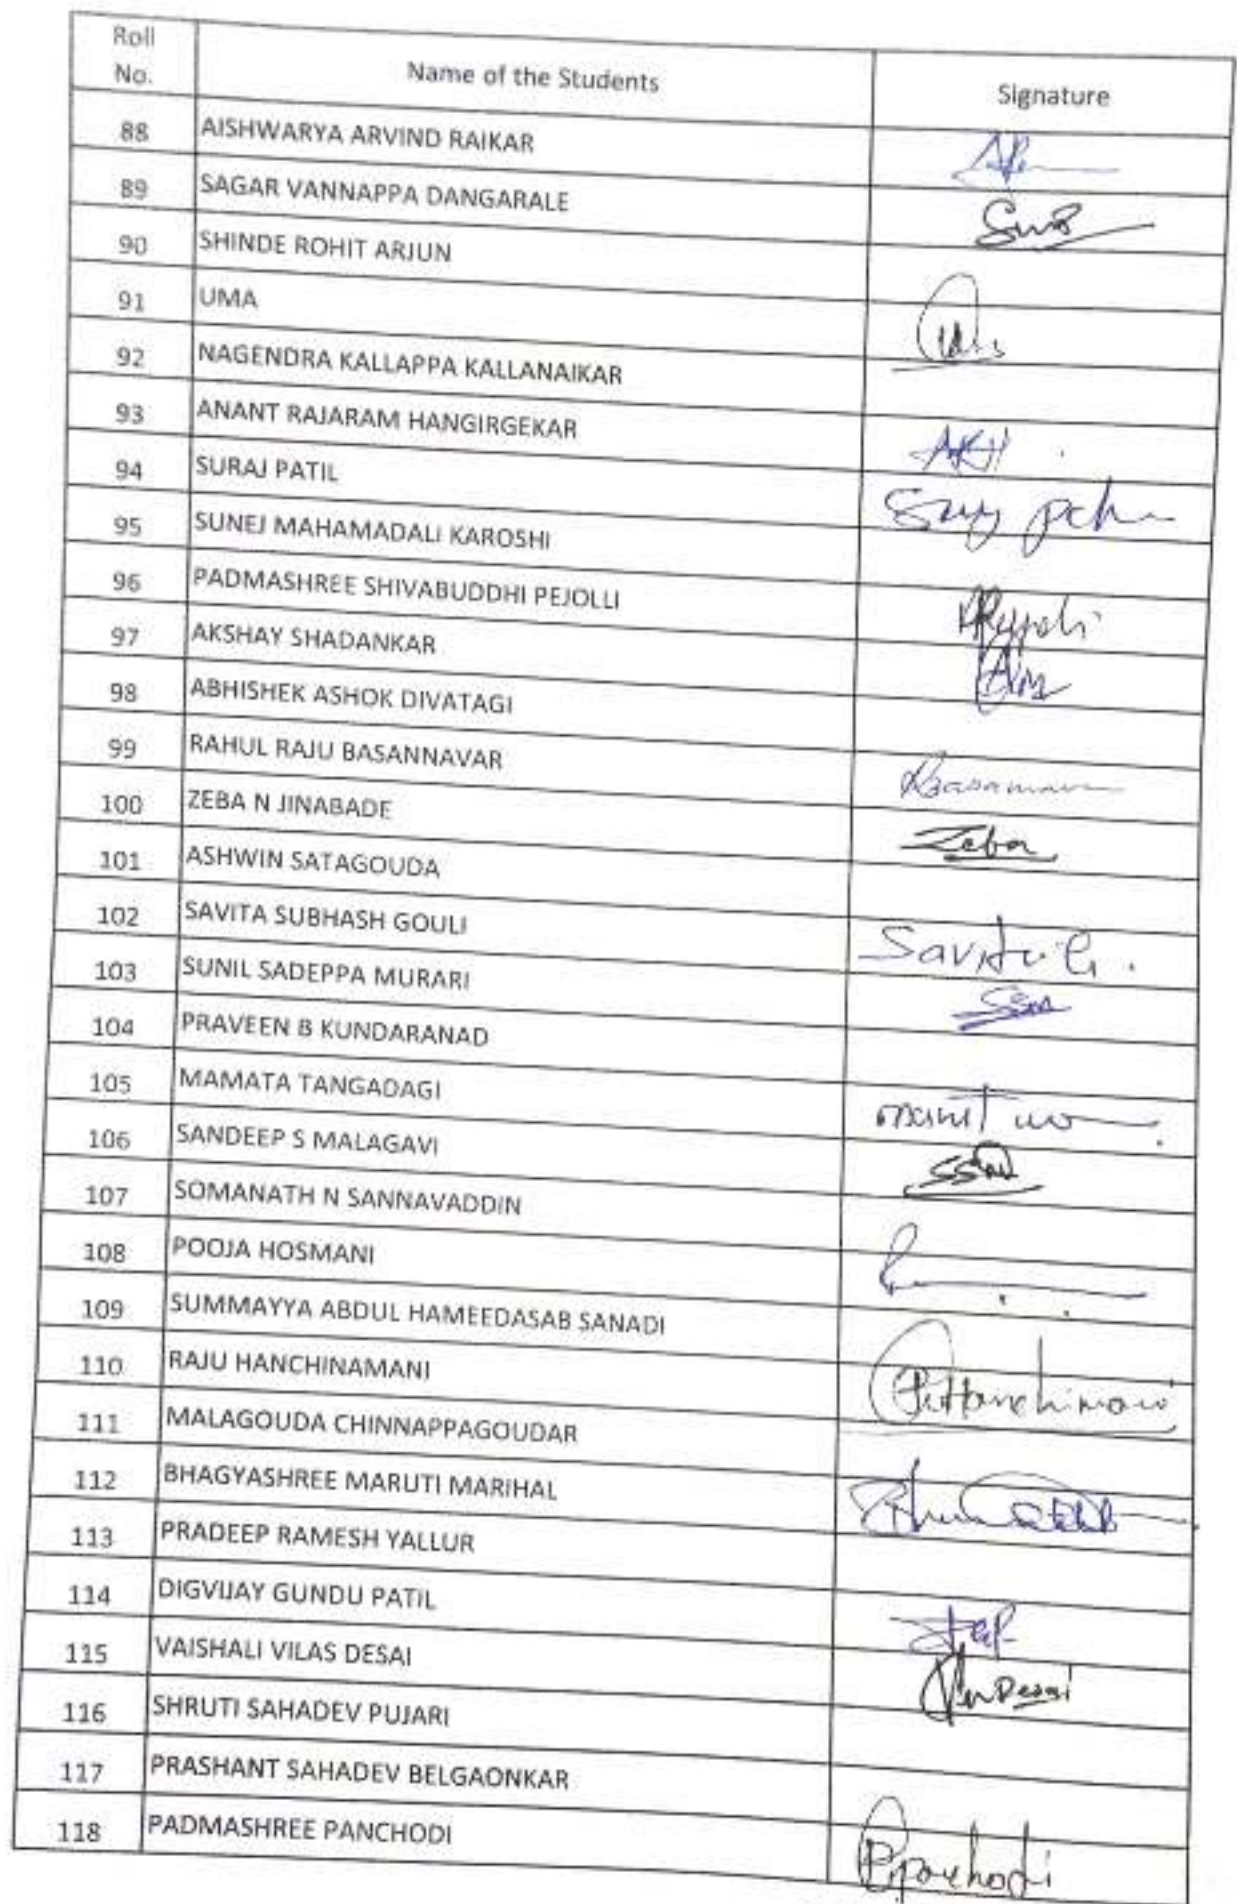 Roll No. Name of the Students Signature
88 AISHWARYA ARVIND RAIKAR
89 SAGAR VANNAPPA DANGARALE
90 SHINDE ROHIT ARJUN
91 UMA
92 NAGENDRA KALLAPPA KALLANAIKAR
93 ANANT RAJARAM HANGIRGEKAR
94 SURAJ PATIL
95 SUNEJ MAHAMADALI KAROSHI
96 PADMASHREE SHIVABUDDHI PEJOLLI
97 AKSHAY SHADANKAR
98 ABHISHEK ASHOK DIVATAGI
99 RAHUL RAJU BASANNAVAR
100 ZEBA N JINABADE Zeba
101 ASHWIN SATAGOUDA
102 SAVITA SUBHASH GOULI
103 SUNIL SADEPPA MURARI
104 PRAVEEN B KUNDARANAD
105 MAMATA TANGADAGI
106 SANDEEP S MALAGAVI
107 SOMANATH N SANNAVADDIN
108 POOJA HOSMANI
109 SUMMAYYA ABDUL HAMEEDASAB SANADI
110 RAJU HANCHINAMANI
111 MALAGOUDA CHINNAPPAGOUDAR
112 BHAGYASHREE MARUTI MARIHAL
113 PRADEEP RAMESH YALLUR
114 DIGVIJAY GUNDU PATIL
115 VAISHALI VILAS DESAI
116 SHRUTI SAHADEV PUJARI
117 PRASHANT SAHADEV BELGAONKAR
118 PADMASHREE PANCHODI